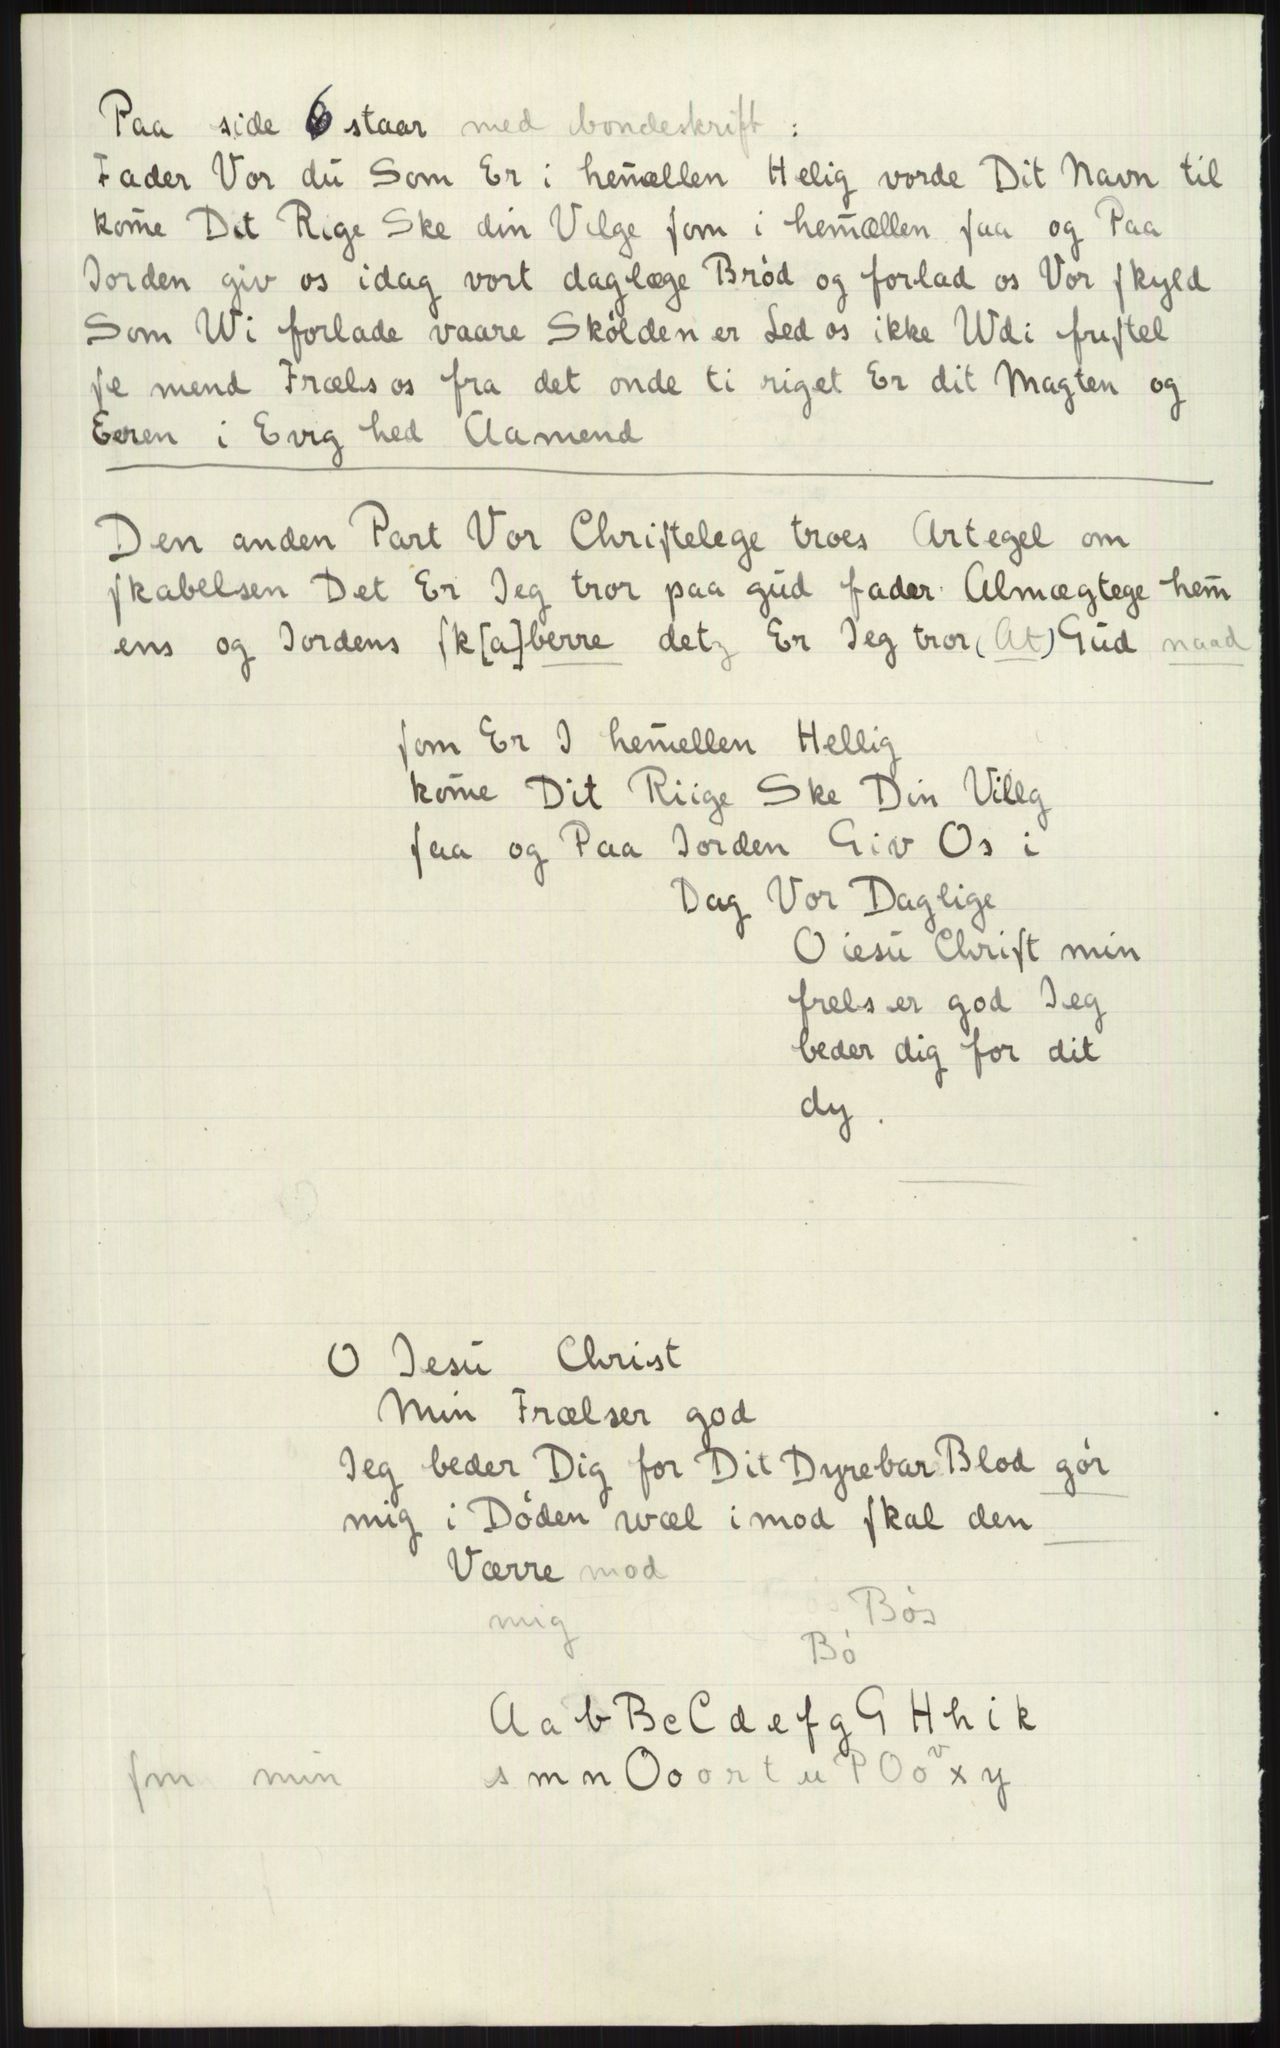 Paa side 6 staar med bondeskrift :
Fader Vor dū Som Er i hem̄ællen Helig vorde Dit Navn til
kom̄e Dit Rige Ske din Vilge ſom i hem̄ællen ſaa og Paa
Jorden giv os idag vort daglæge Bród og forlad os Vor ſkyld
Som Wi forlade vaare Skólden er Led os ikke Wdi friſtel
ſe mend Fræls os fra det onde ti riget Er dit Magten og
Eeren i Evig hed Aamend
Den anden Part Vor Chriſtelege troes Artegel om
ſkabelsen Det Er Jeg tror paa gūd fader Almægtege hem̄
ens og Jordens ſk[a]berre detz Er Jeg tror (At) Gūd naad
ſom Er I hem̄ellen Hellig
kom̄e Dit Riige Ske Din Villg
ſaa og Paa Jorden Giv Os i
Dag Vor Daglige
O iesū Chriſt min
frels er god Jeg
beder dig for dit
dy .
O Jesū Christ
Min Frælser god
Jeg beder Dig for Dit Dyrebar Blod gór
mig i Dóden wæl imod ſkal den
Værre mod
mig Bós
Bó
A a b B c C d e f g G H h i k
ſm min s m n O o o r t u P O o v x y